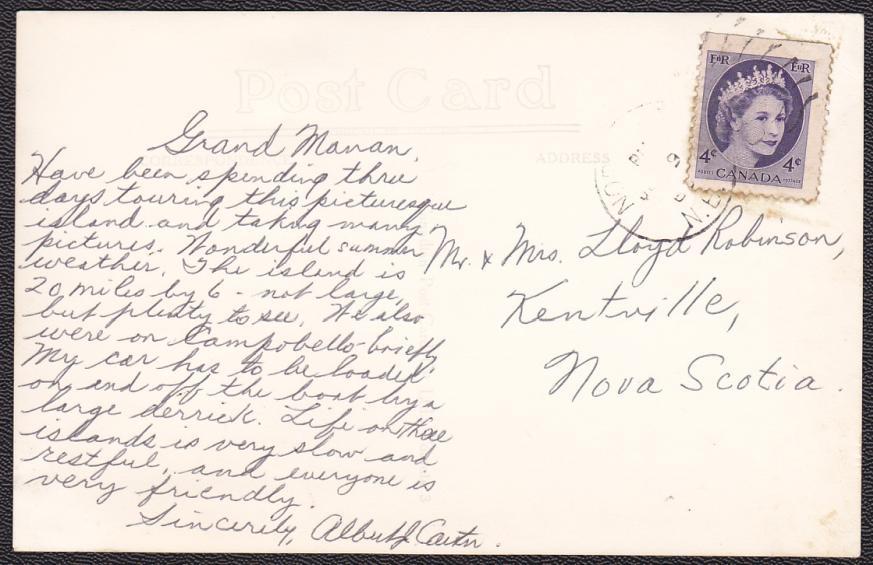 Post Card
CORRESPONDENCE
ADDRESS
E II R
E II R
4¢
4¢
POSTES POSTAGE
CANADA
N.B.
Grand Manan,
Have been spending three
days touring this picturesque
island and taking many
pictures. Wonderful summer
weather. The island is
20 miles by 6 - not large,
but plenty to see. We also
were on Campobello - briefly.
My car has to be loaded
on and off the boat by a
large derrick. Life on these
islands is very slow and
restful, and everyone is
very friendly.
Sincerely, Albert
Mr. & Mrs. Lloyd Robinson,
Kentville,
Nova Scotia.